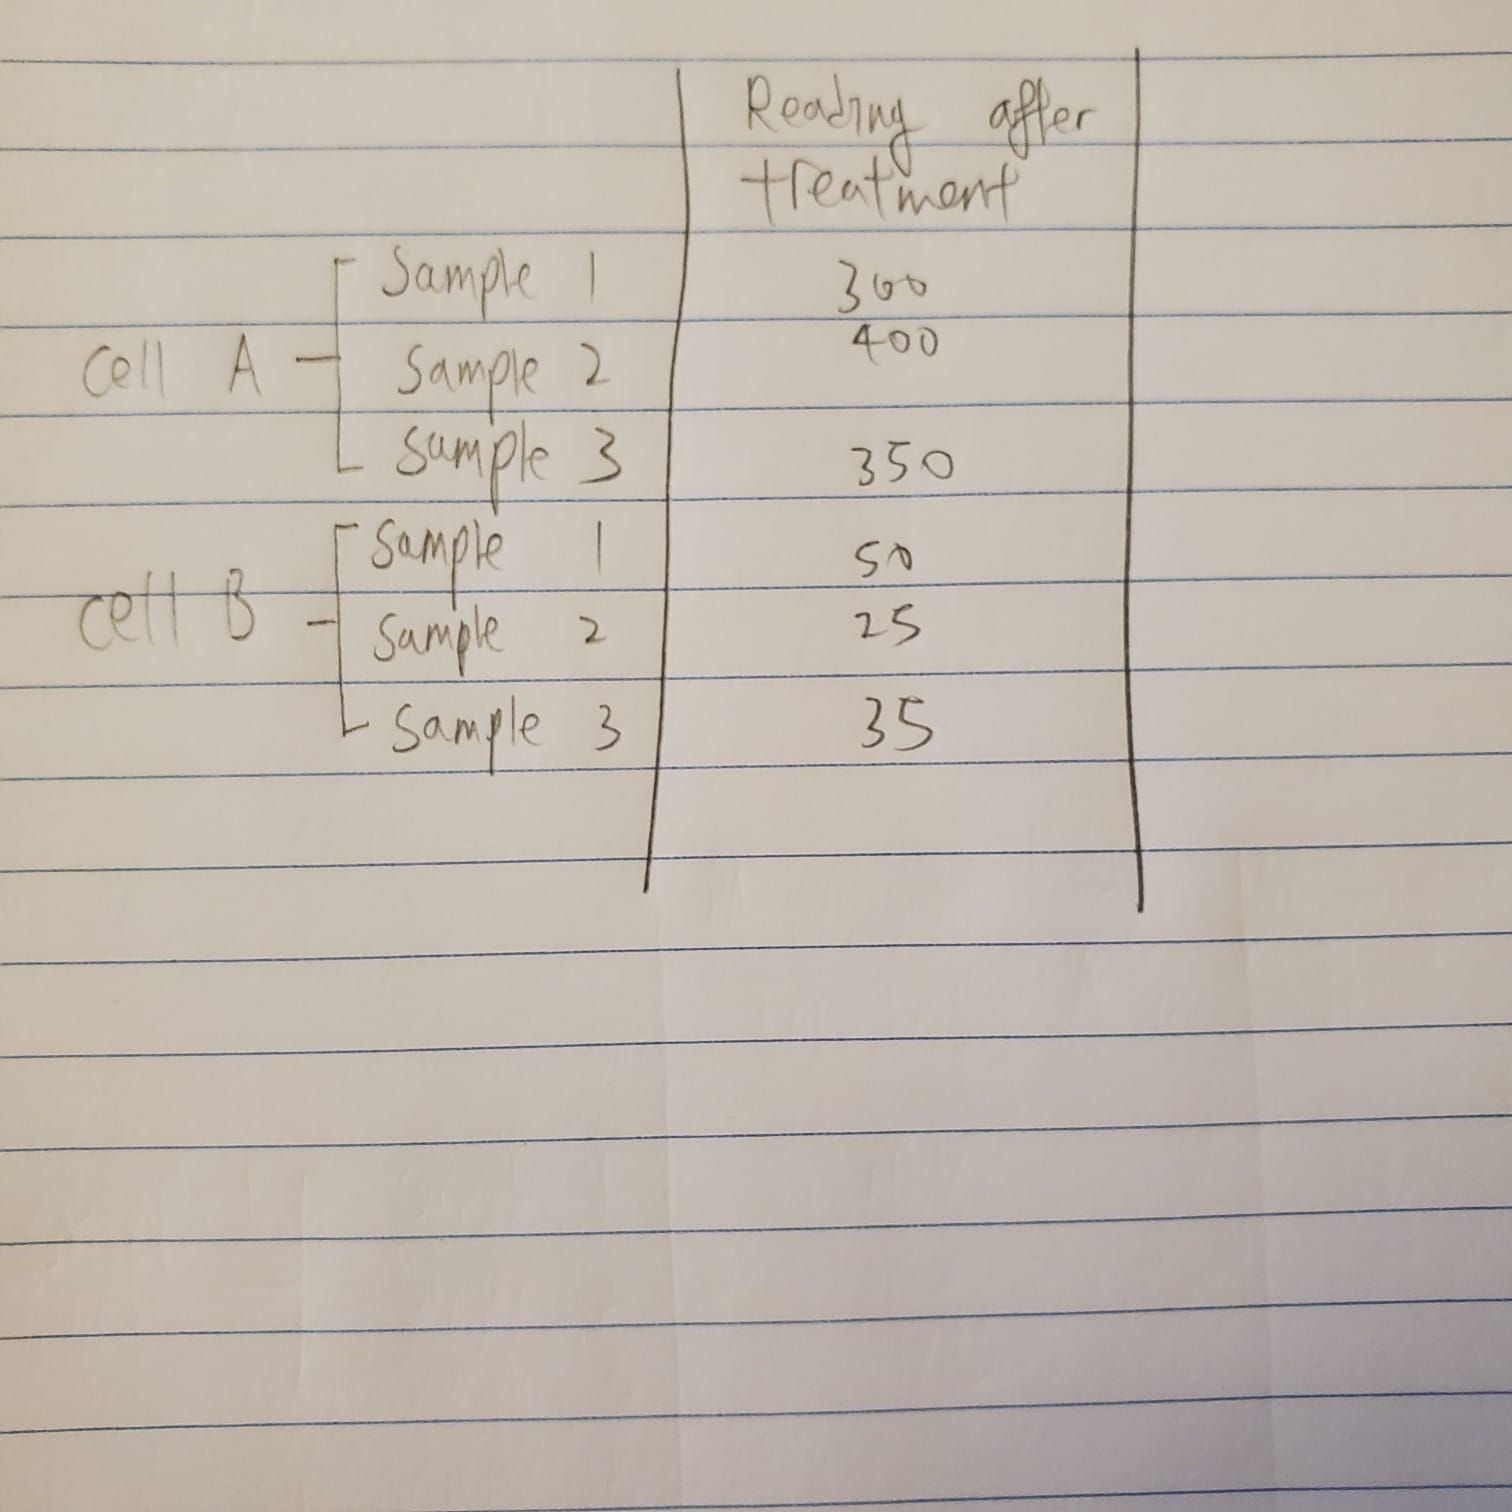 Reading after
treatment
Sample 1 300
Cell A Sample 2 400
Sample 3 350
Sample 1 50
cell B Sample 2 25
Sample 3 35